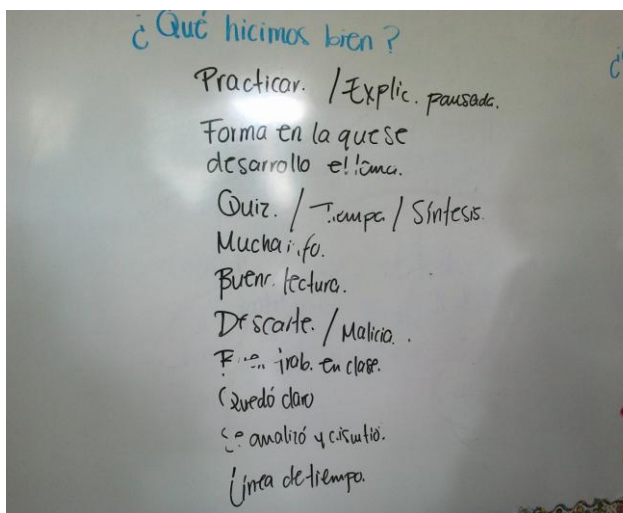 ¿Qué hicimos bien?
Practicar. / Explic. pausada.
Forma en la que se
desarrollo el tema.
Quiz. / Tiempo / Síntesis.
Mucha info.
Buena lectura.
Descarte. / Malicia.
Buen trab. en clase.
Quedó claro
Se analizó y discutió.
Línea de tiempo.
¿